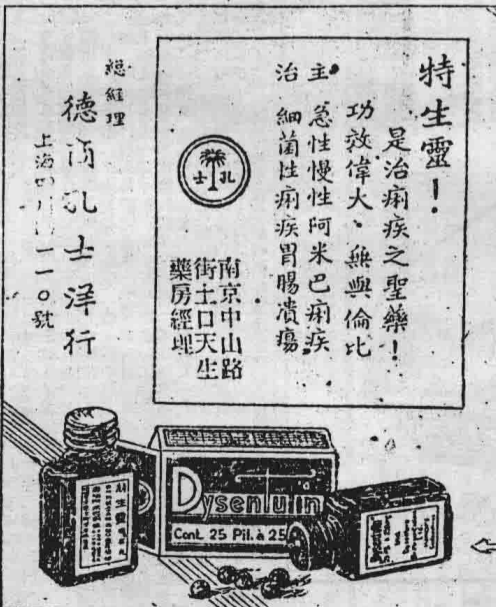 特生靈!
是治痢疾之聖藥!
功效偉大.無與倫比
主治
急性慢性阿米巴痢疾
細菌性痢疾胃腸潰瘍
士孔
南京中山路
街土口天生
藥房經理
總經理
德商孔士洋行
上海四川路一一〇號
Dysentulin
Cont. 25 Pil. à 25